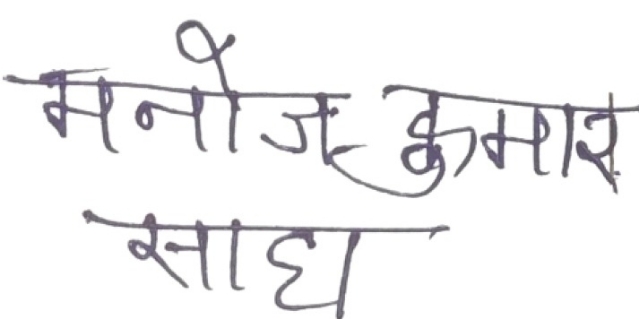 मनोज कुमार
साध